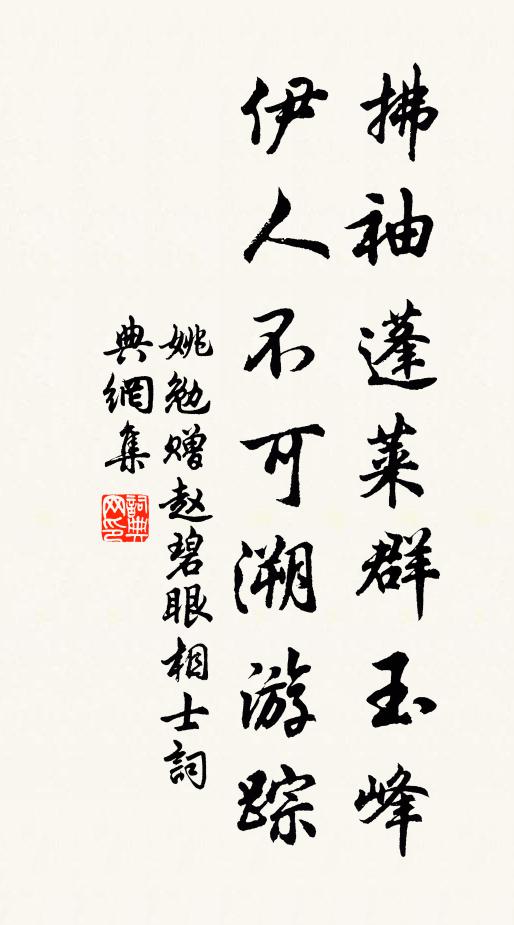 拂袖蓬莱群玉峰
伊人不可溯游踪
姚勉赠赵碧眼相士詞
典網集
詞典网印